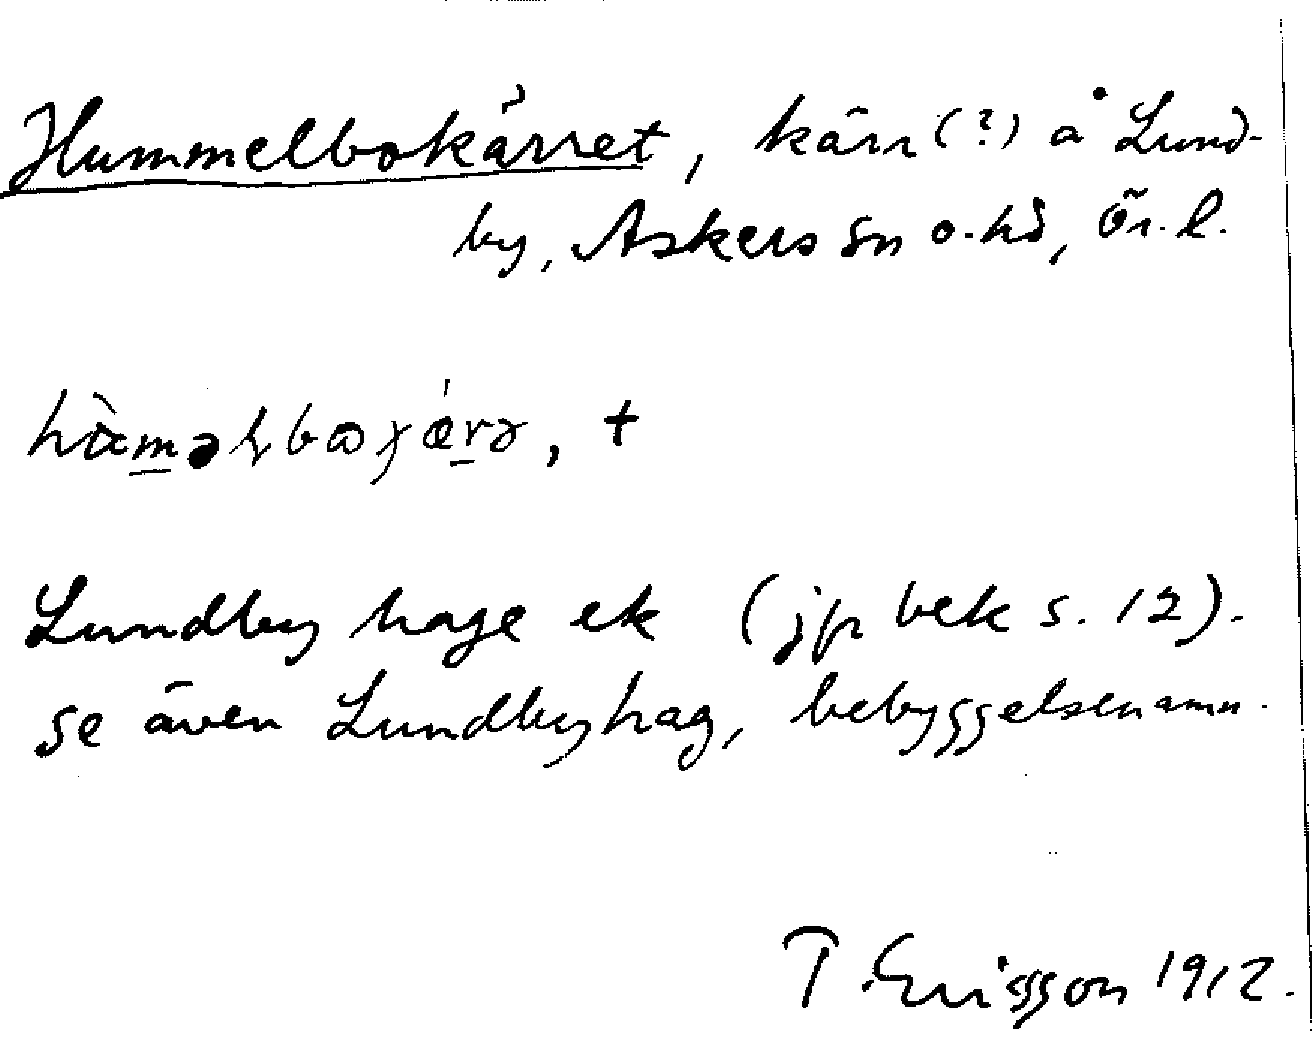 Hummelbokärret, kärr (?) å Lund-
by, Askers sn o. hd, Ör. l.
, +
Lundby hage ek (jfr bek s. 12).
se även Lundbyhag, bebyggelsenamn.
T. Ericsson 1912.